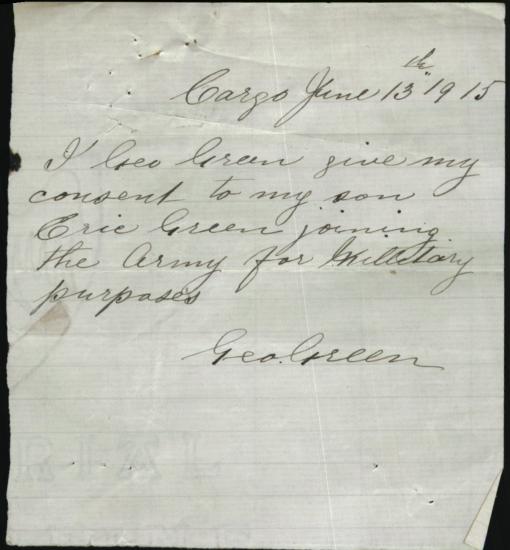 Cargo June 13th 1915
I Geo Green give my
consent to my son
Eric Green joining
the Army for Milletary
purposes
Geo. Green